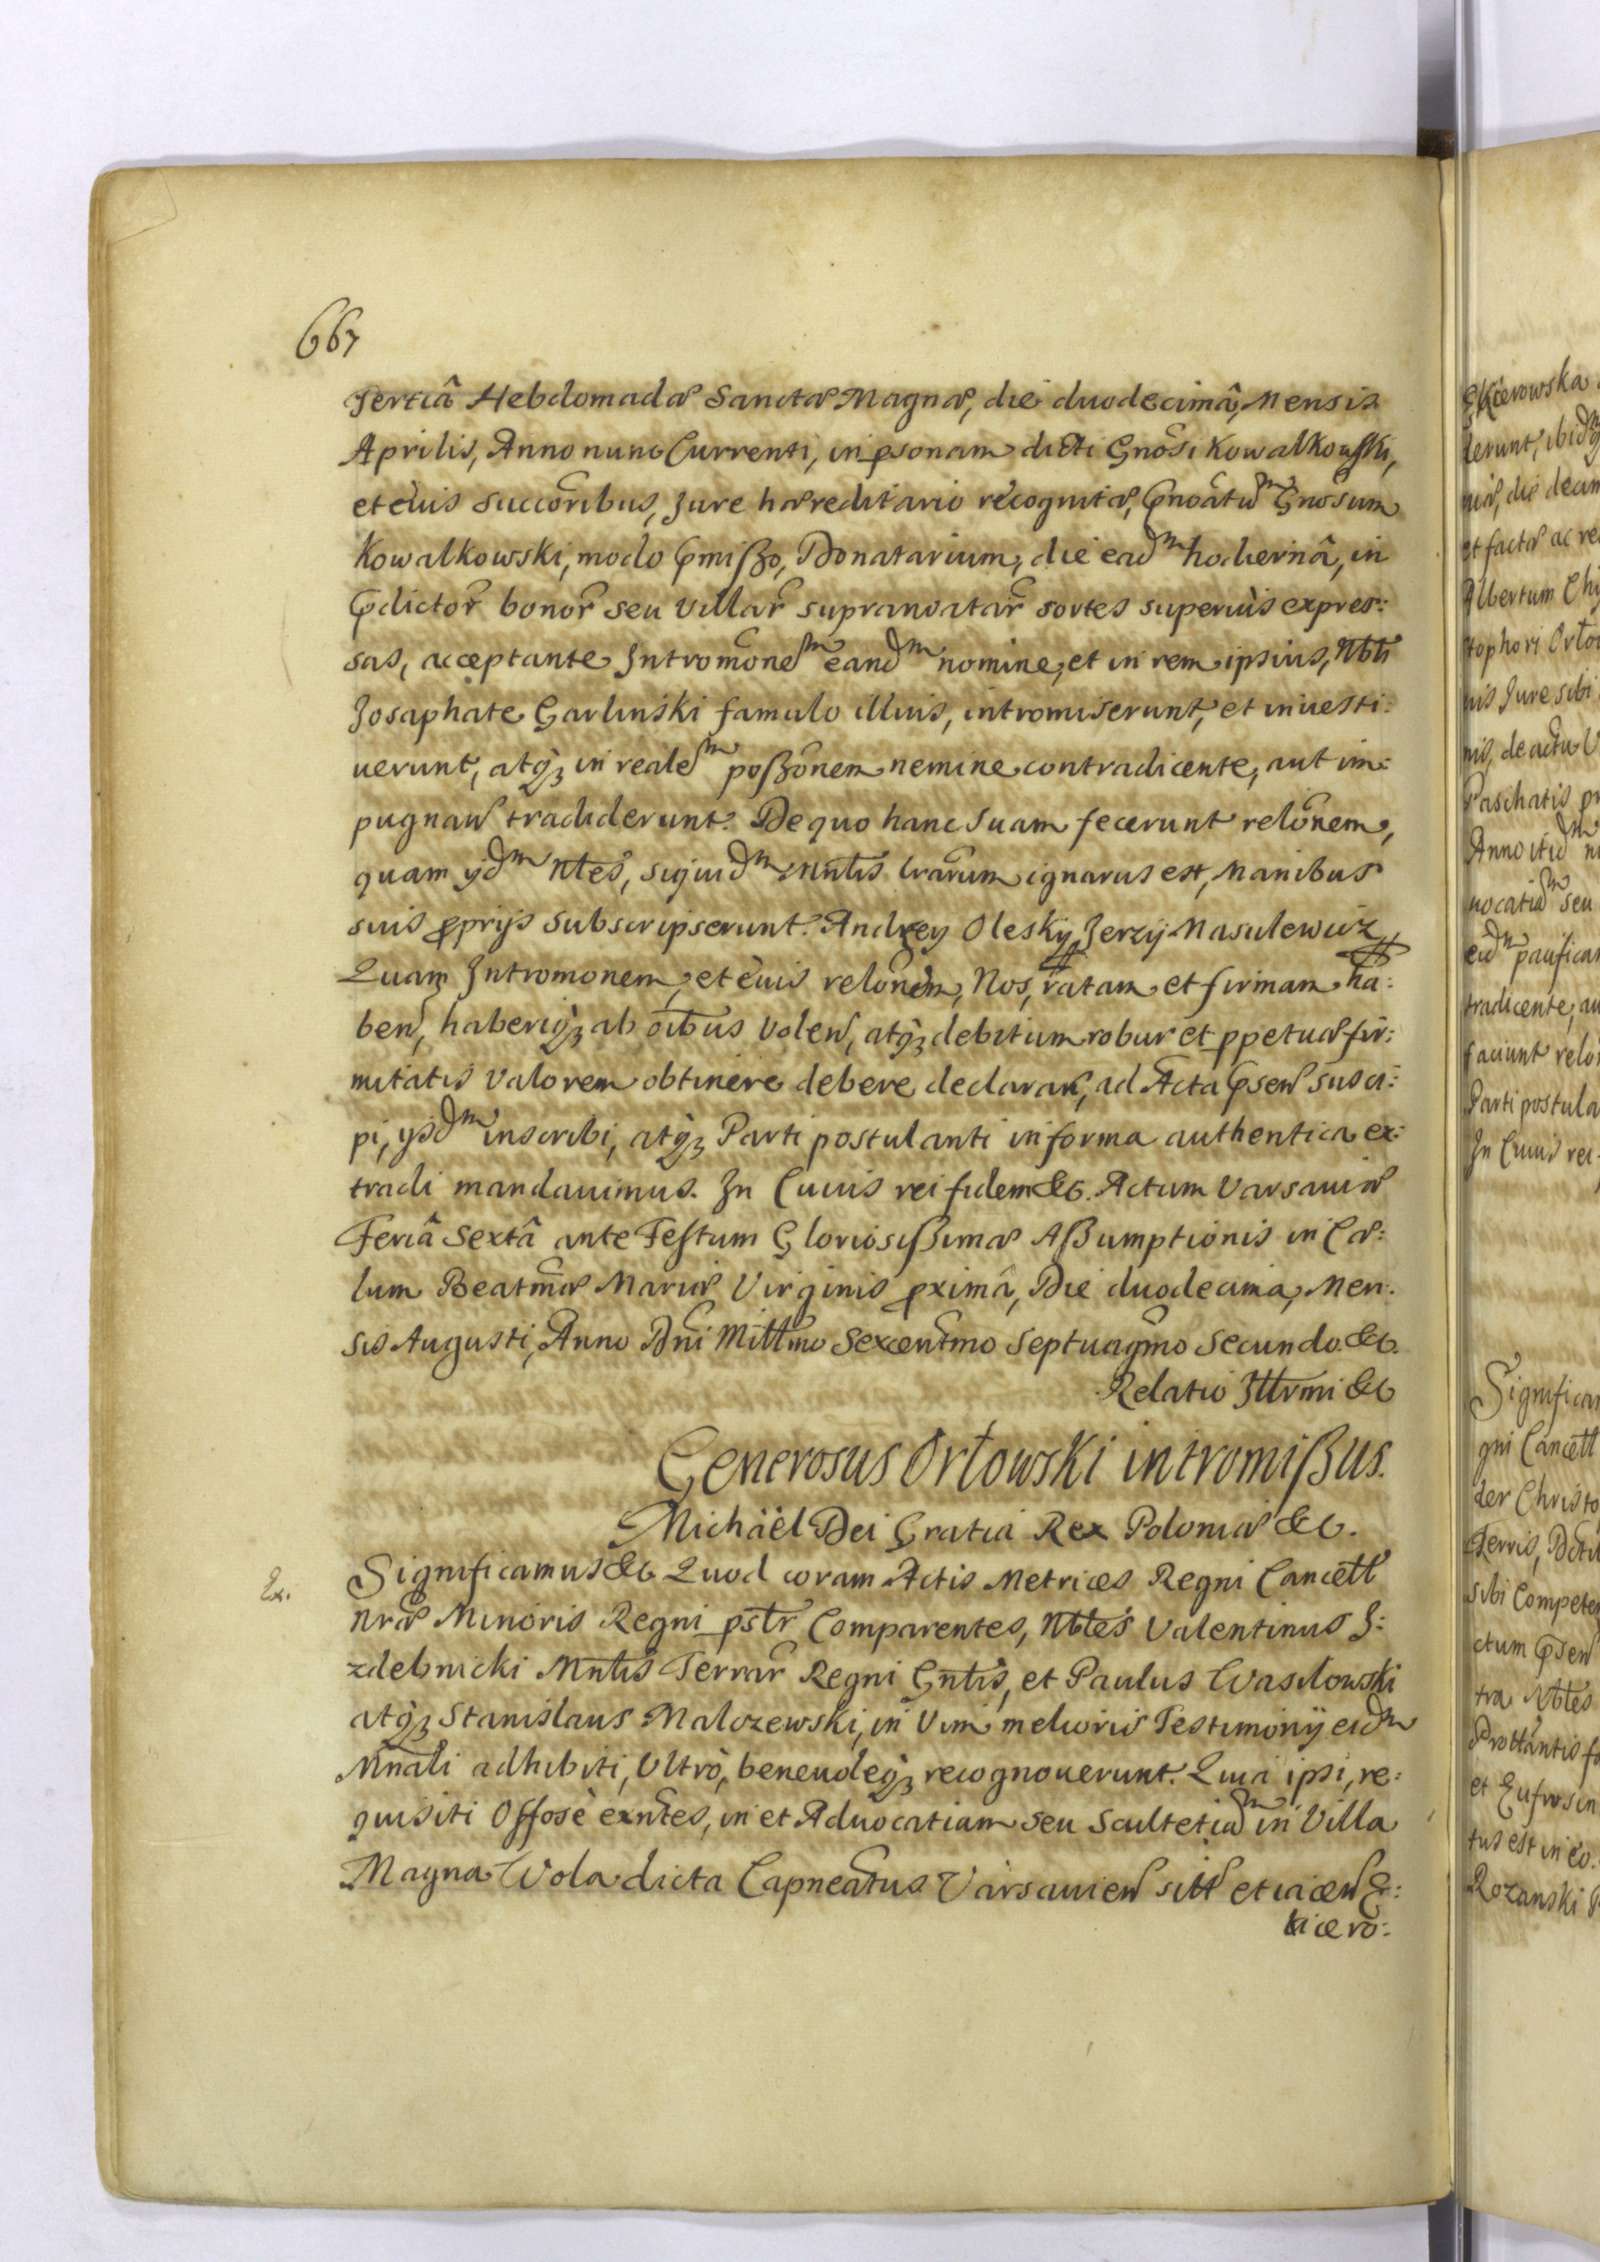 667
Tertiâ Hebdomadæ Sanctæ Magnæ, die duodecimâ, Mensis
Aprilis, Anno nunc Currenti, in psonam dicti Gnosi Kowalkowski,
et eius Succoribus, Jure hæreditario recognitæ, pnoatum Gnosum
Kowalkowski, modo pmißo, Donatarium, die eadm hodiernâ, in
pdictor bonor seu Villar supranoatar sortes superiùs expres:
sas, acceptante Intromonem eandm nomine, et in rem ipsius, Nbli
Josaphate Garlinski famulo illius, intromiserunt, et inuesti:
uerunt, atq3 in realem poßonem nemine contradicente, aut im:
pugnan tradiderunt. De quo hanc suam fecerunt relonem,
quam ijdm Nles, siquidm Mnlis lrarum ignarus est, Manibus
suis pprijs subscripserunt. Andrzey Olesky, Jerzy Masulewicz
Quam Intromonem, et eius relonem, Nos, ratam et firmam ha:
ben, haberiq3 ab oibus Volen, atq3 debitum robur et ppetuæ fir:
mitatis Valorem obtinere debere declaran, ad Acta psen susci:
pi, ijsdm inscribi, atq3 Parti postulanti in forma authentica ex:
tradi mandauimus. In Cuius rei fidem &c. Actum Varsauiæ
Feriâ Sextâ ante Festum Gloriosißimæ Aßumptionis in Cæ:
lum Beatmæ Mariæ Virginis pximâ, Die duodecima, Men:
sis Augusti, Anno Dni Millmo Sexcentmo Septuagmo Secundo. &c.
Relatio Illrmi &c
Generosus Orłowski intromißus.
Michäel Dei Gratia Rex Poloniæ &c.
Ex.
Significamus &c Quod coram Actis Metrices Regni Cancell
nræ Minoris Regni pslr Comparentes, Nbles Valentinus J:
zdebnicki Mnlis Terrar Regni Gnlis, et Paulus Wasilowski
atq3 Stanislaus Malczewski, in Vim melioris Testimonij eidm
Mnali adhibiti, Vltrò, beneuoleq3 recognouerunt. Quia ipsi, re:
quisiti Offosè exntes, in et Aduocatiam seu Scultetiam in Villa
Magna Wola dicta Capneatus Varsauien sitt et iacen G:
kiero: